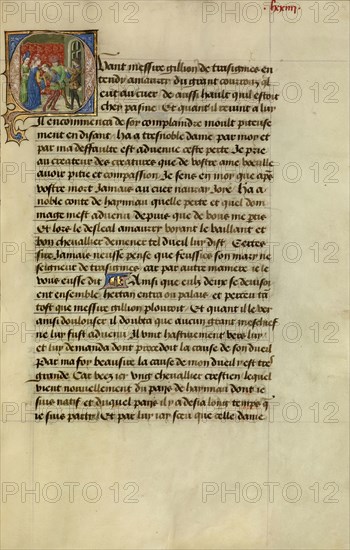 lxxiii
Quant messire gillion de trasignies en
tendy amaury du grant courroux il
eut au cuer de ainsi hault quil estoit
cheÿ pasme Et quant il revint a luy
Il encommenca de soy complaindre moult piteuse
ment en disant ha a tresnoble dame par moy et
par ma deffaulte est advenue ceste perte Je prie
au createur des creatures que de vostre ame voeulle
avoir pitie et compassion Je sens en moy que apres
vostre mort Jamais au cuer nauray Joye Ha a
noble conte de haynnau quelle perte et quel dom
mage mest advenu depuis que de vous me partis
Et lors le desleal amaury voyant le vaillant et
bon chevallier demener tel dueil luy dist Certes
sire Jamais neusse pense que feussies son mary ne
seigneur de trasignies car par autre maniere ie le
vous eusse dit Ainsi que eulz deux se devisoi
ent ensemble hertan entra ou palais et perceu ta
tost que messire gillion plouroit Et quant il le vey
ainsi doulouser il doubta que aucun grant meschief
ne luy fust advenu Il vint hastivement vers luy
et luy demanda dont procedoit la cause de son dueil
Par ma foy beau sire la cause de mon dueil est tres
grande Car veez cy ung chevallier crestien lequel
vient nouvellement du pays de haynnau dont ie
suis natif et duquel pays il y a desia long temps q
ie suis party Et par luy iay sceu que celle dame